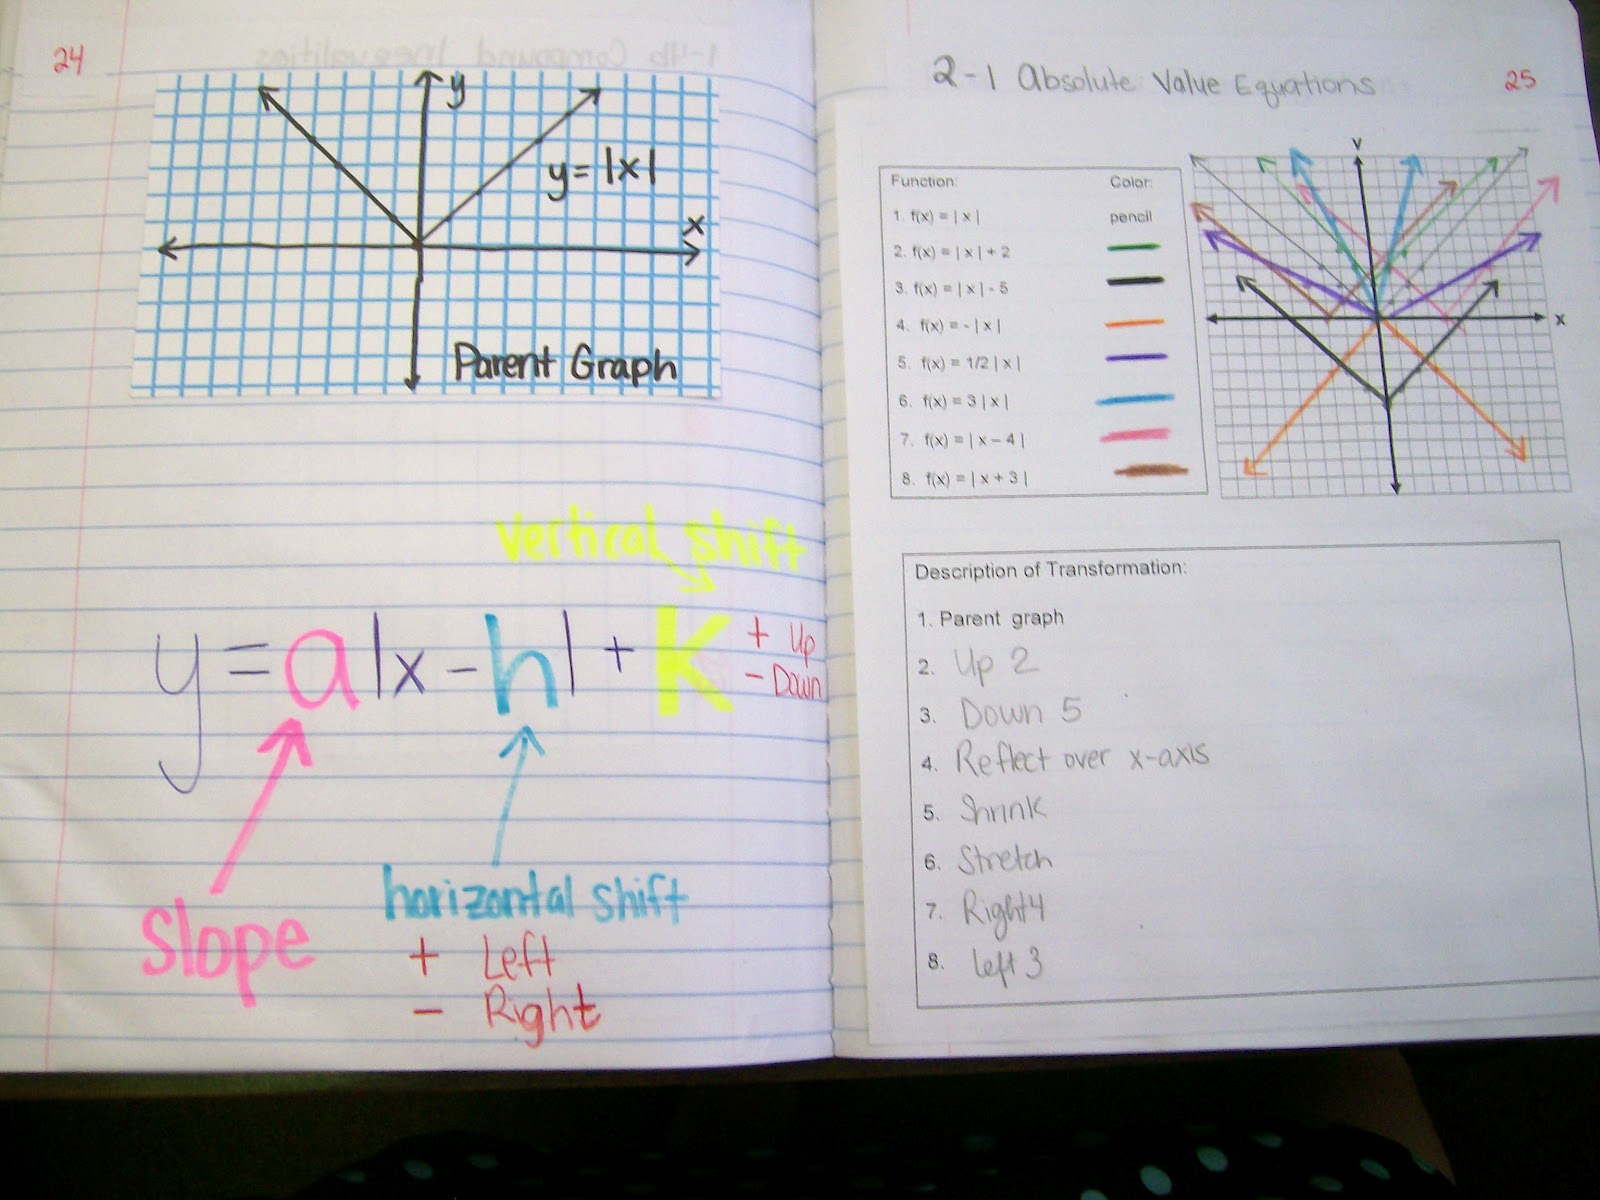 24
y
y = |x|
x
Parent Graph
vertical shift
y = a|x - h| + k
+ Up
- Down
slope
horizontal shift
+ Left
- Right
2-1 Absolute Value Equations
25
Function: Color:
1. f(x) = | x | pencil
2. f(x) = | x | + 2
3. f(x) = | x | - 5
4. f(x) = - | x |
5. f(x) = 1/2 | x |
6. f(x) = 3 | x |
7. f(x) = | x – 4 |
8. f(x) = | x + 3 |
y
x
Description of Transformation:
1. Parent graph
2. Up 2
3. Down 5
4. Reflect over x-axis
5. Shrink
6. Stretch
7. Right 4
8. Left 3